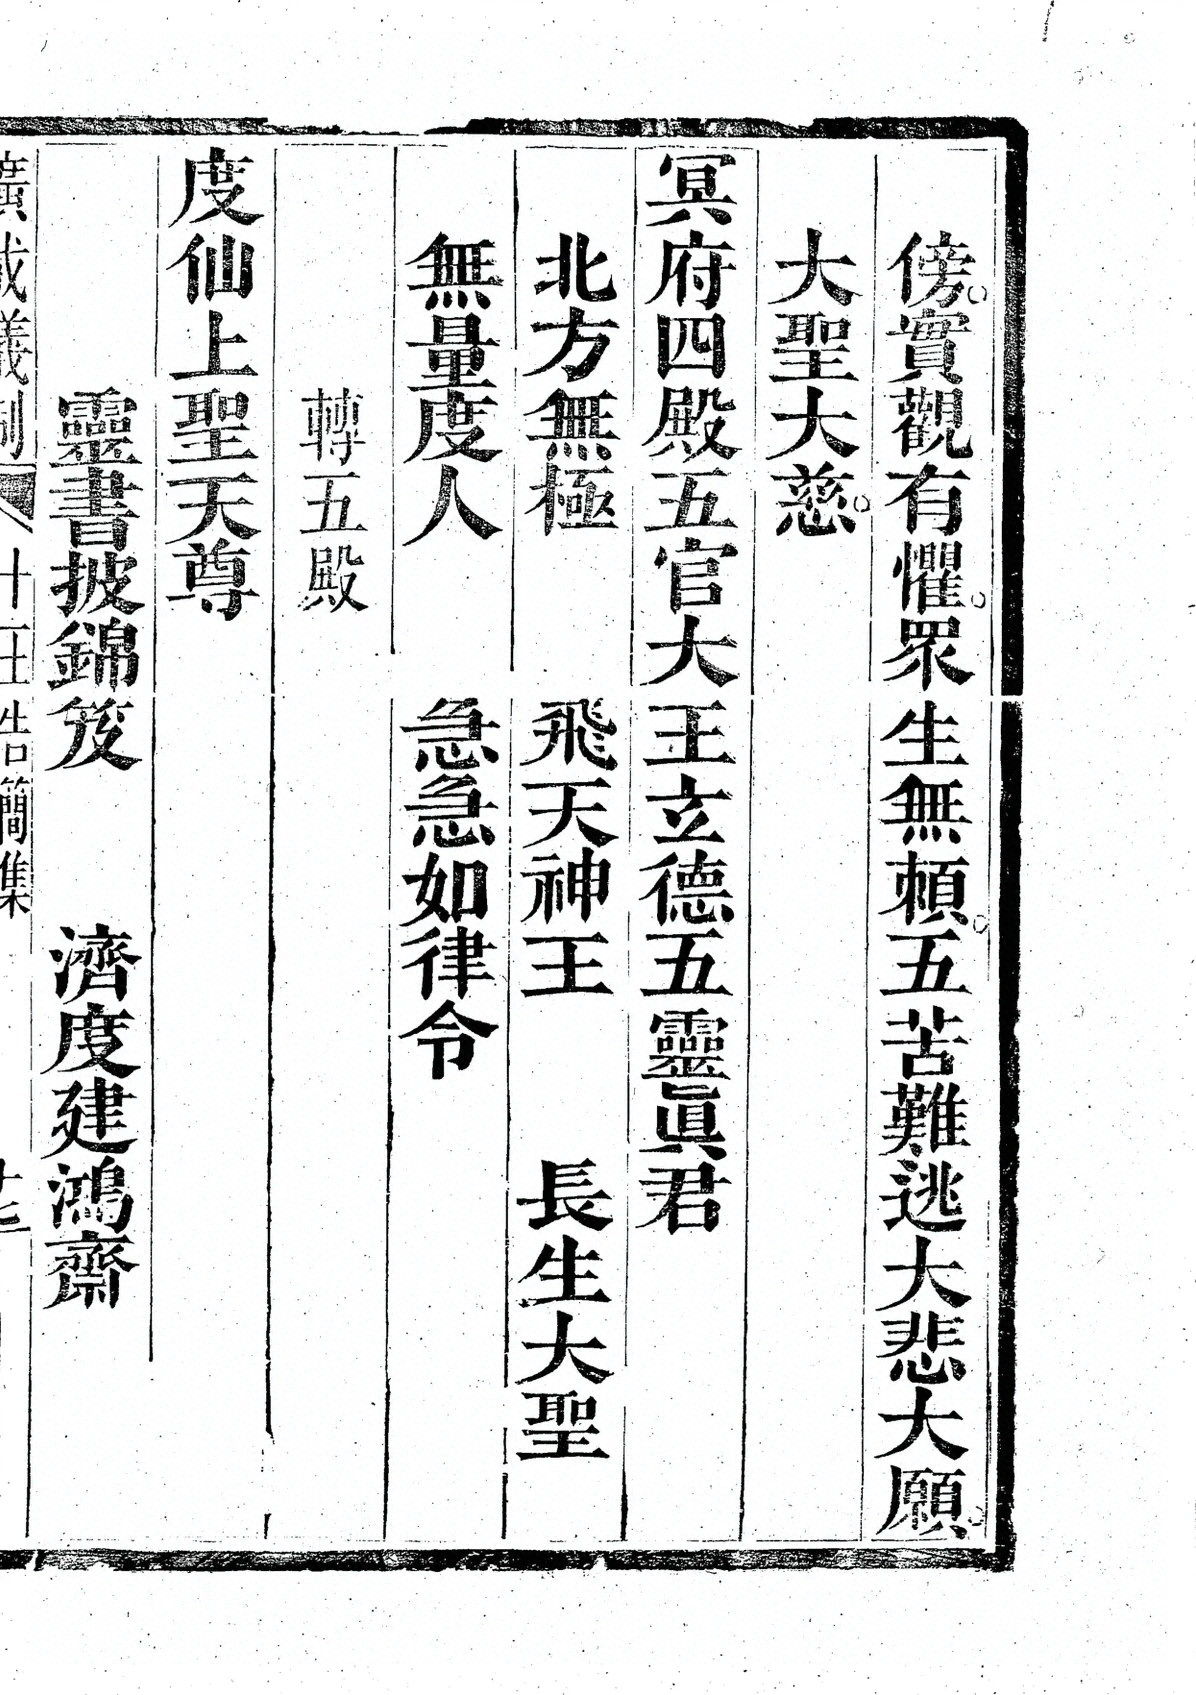 傍。實觀有懼。眾生無頼。五苦難逃大悲大願。
大聖大慈。
冥府四殿五官大王立德五靈眞君
北方無極 飛天神王 長生大聖
無量度人 急急如律令
轉五殿
度仙上聖天尊
靈書披錦笈 濟度建鴻齋
廣成儀制 十王告簡集